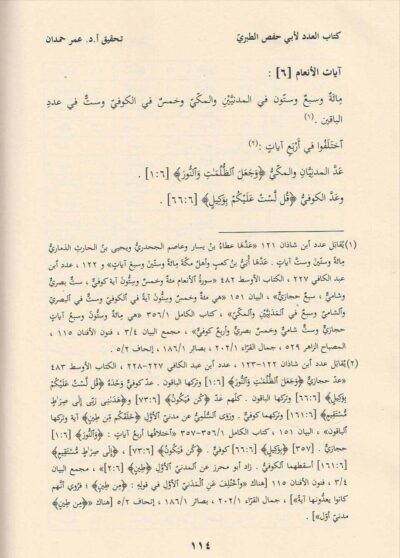 كتاب العدد لأبي حفص الطبريّ تحقيق أ.د. عمر حمدان
آيات الأنعام [٦] :
مِائَةٌ وسبعٌ وستّون في المدنيَّيْنِ والمكّيّ وخمسٌ في الكوفيّ وستٌّ في عددِ
الباقين .(١)
اَختلَفُوا في أَرْبَعِ آياتٍ :(٢)
عَدَّ المدنيَّانِ والمكّيُّ ﴿وَجَعَلَ ٱلظُّلُمَٰتِ وَٱلنُّورَ﴾ [١:٦] .
وعَدَّ الكوفيُّ ﴿قُل لَّسْتُ عَلَيْكُم بِوَكِيلٍ﴾ [٦٦:٦] .
(١) يُقابَل عدد ابن شاذان ١٢١ «عَدَّها عطاءُ بنُ يسار وعاصم الجحدريّ ويحيى بنُ الحارث الذماريّ
مِائةً وستّين وستَّ آياتٍ . عَدَّها أُبَيُّ بنُ كعبٍ وأهلُ مكّةَ مِائَةً وستّين وسبعَ آياتٍ» و ١٢٢ ، عدد ابن
عبد الكافي ٢٢٧ ، الكتاب الأوسط ٤٨٢ «سورةُ الأنعام مئة وخمس وستّون آية كوفيّ ، ستّ بصريّ
وشاميّ ، سبع حجازيّ» ، البيان ١٥١ «هي مئةٌ وخمسٌ وستّون آيةً في الكوفيّ وستٌّ في البصريّ
والشاميّ وسبعٌ في المَدَنِيَّيْنِ والمَكّيّ» ، كتاب الكامل ٣٥٦/١ «هي مائةٌ وستّون وسبعُ آياتٍ
حجازيٌّ وستٌّ شاميٌّ وخمسٌ بصريٌّ وأربعٌ كوفيٌّ» ، مجمع البيان ٣/٤ ، فنون الأفنان ١١٥ ،
المصباح الزاهر ٥٢٩ ، جمال القرّاء ٢٠٢/١ ، بصائر ١٨٦/١ ، إتحاف ٥/٢ .
(٢) يُقابَل عدد ابن شاذان ١٢٢-١٢٣ ، عدد ابن عبد الكافي ٢٢٧-٢٢٨ ، الكتاب الأوسط ٤٨٣
«عدّ حجازيٌّ ﴿وَجَعَلَ ٱلظُّلُمَٰتِ وَٱلنُّورَ﴾ [١:٦] وتركها الباقون . عدّ كوفيّ وحْدَهُ ﴿قُل لَّسْتُ عَلَيْكُم
بِوَكِيلٍ﴾ [٦٦:٦] وتركها الباقون . كلّهم عدّ ﴿كُن فَيَكُونُ﴾ [٧٣:٦] و﴿هَدَىٰنِى رَبِّى إِلَىٰ صِرَٰطٍ
مُّسْتَقِيمٍ﴾ [١٦١:٦] وتركهما كوفيّ . ورَوَى السُّلَمِيُّ عن مدنيّ الأوّل ﴿خَلَقَكُم مِّن طِينٍ﴾ آية وتركها
الباقون» ، البيان ١٥١ ، كتاب الكامل ٣٥٦/١-٣٥٧ «اختلافُها أربعُ آياتٍ : ﴿وَٱلنُّورَ﴾ [١:٦]
حجازيٌّ . [٣٥٧] ﴿بِوَكِيلٍ﴾ [٦٦:٦] كوفيٌّ . ﴿كُن فَيَكُونُ﴾ [٧٣:٦] ، ﴿إِلَىٰ صِرَٰطٍ مُّسْتَقِيمٍ﴾
[١٦١:٦] أسقطهما الكوفيُّ . زاد أبو محرز عن المدنيِّ الأوّل ﴿طِينٍ﴾ [٢:٦]» ، مجمع البيان
٣/٤ ، فنون الأفنان ١١٥ [هناك «واخْتُلِفَ عَنِ المَدَنيِّ الأوّلِ في قولِهِ : ﴿مِن طِينٍ﴾ ؛ فرُوِيَ أنَّهم
كانوا يعدُّونها آيةً»] ، جمال القرّاء ٢٠٢/١ ، بصائر ١٨٦/١ ، إتحاف ٥/٢ [هناك «﴿مِن طِينٍ﴾
مدنيّ أوّل»] .
١١٤